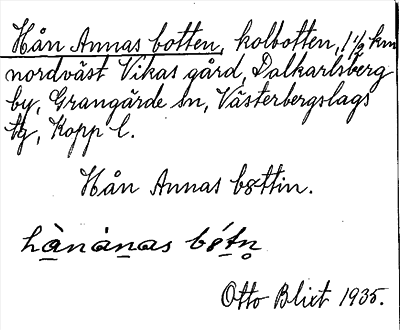 Hån Annas botten, kolbotten, 1 1/2 km
nordväst Vikas gård, Dalkarlsberg
by, Grangärde sn, Västerbergslags
tg, Kopp l.
Hån Annas bottin.
hànànas bótn̥
Otto Blixt 1935.